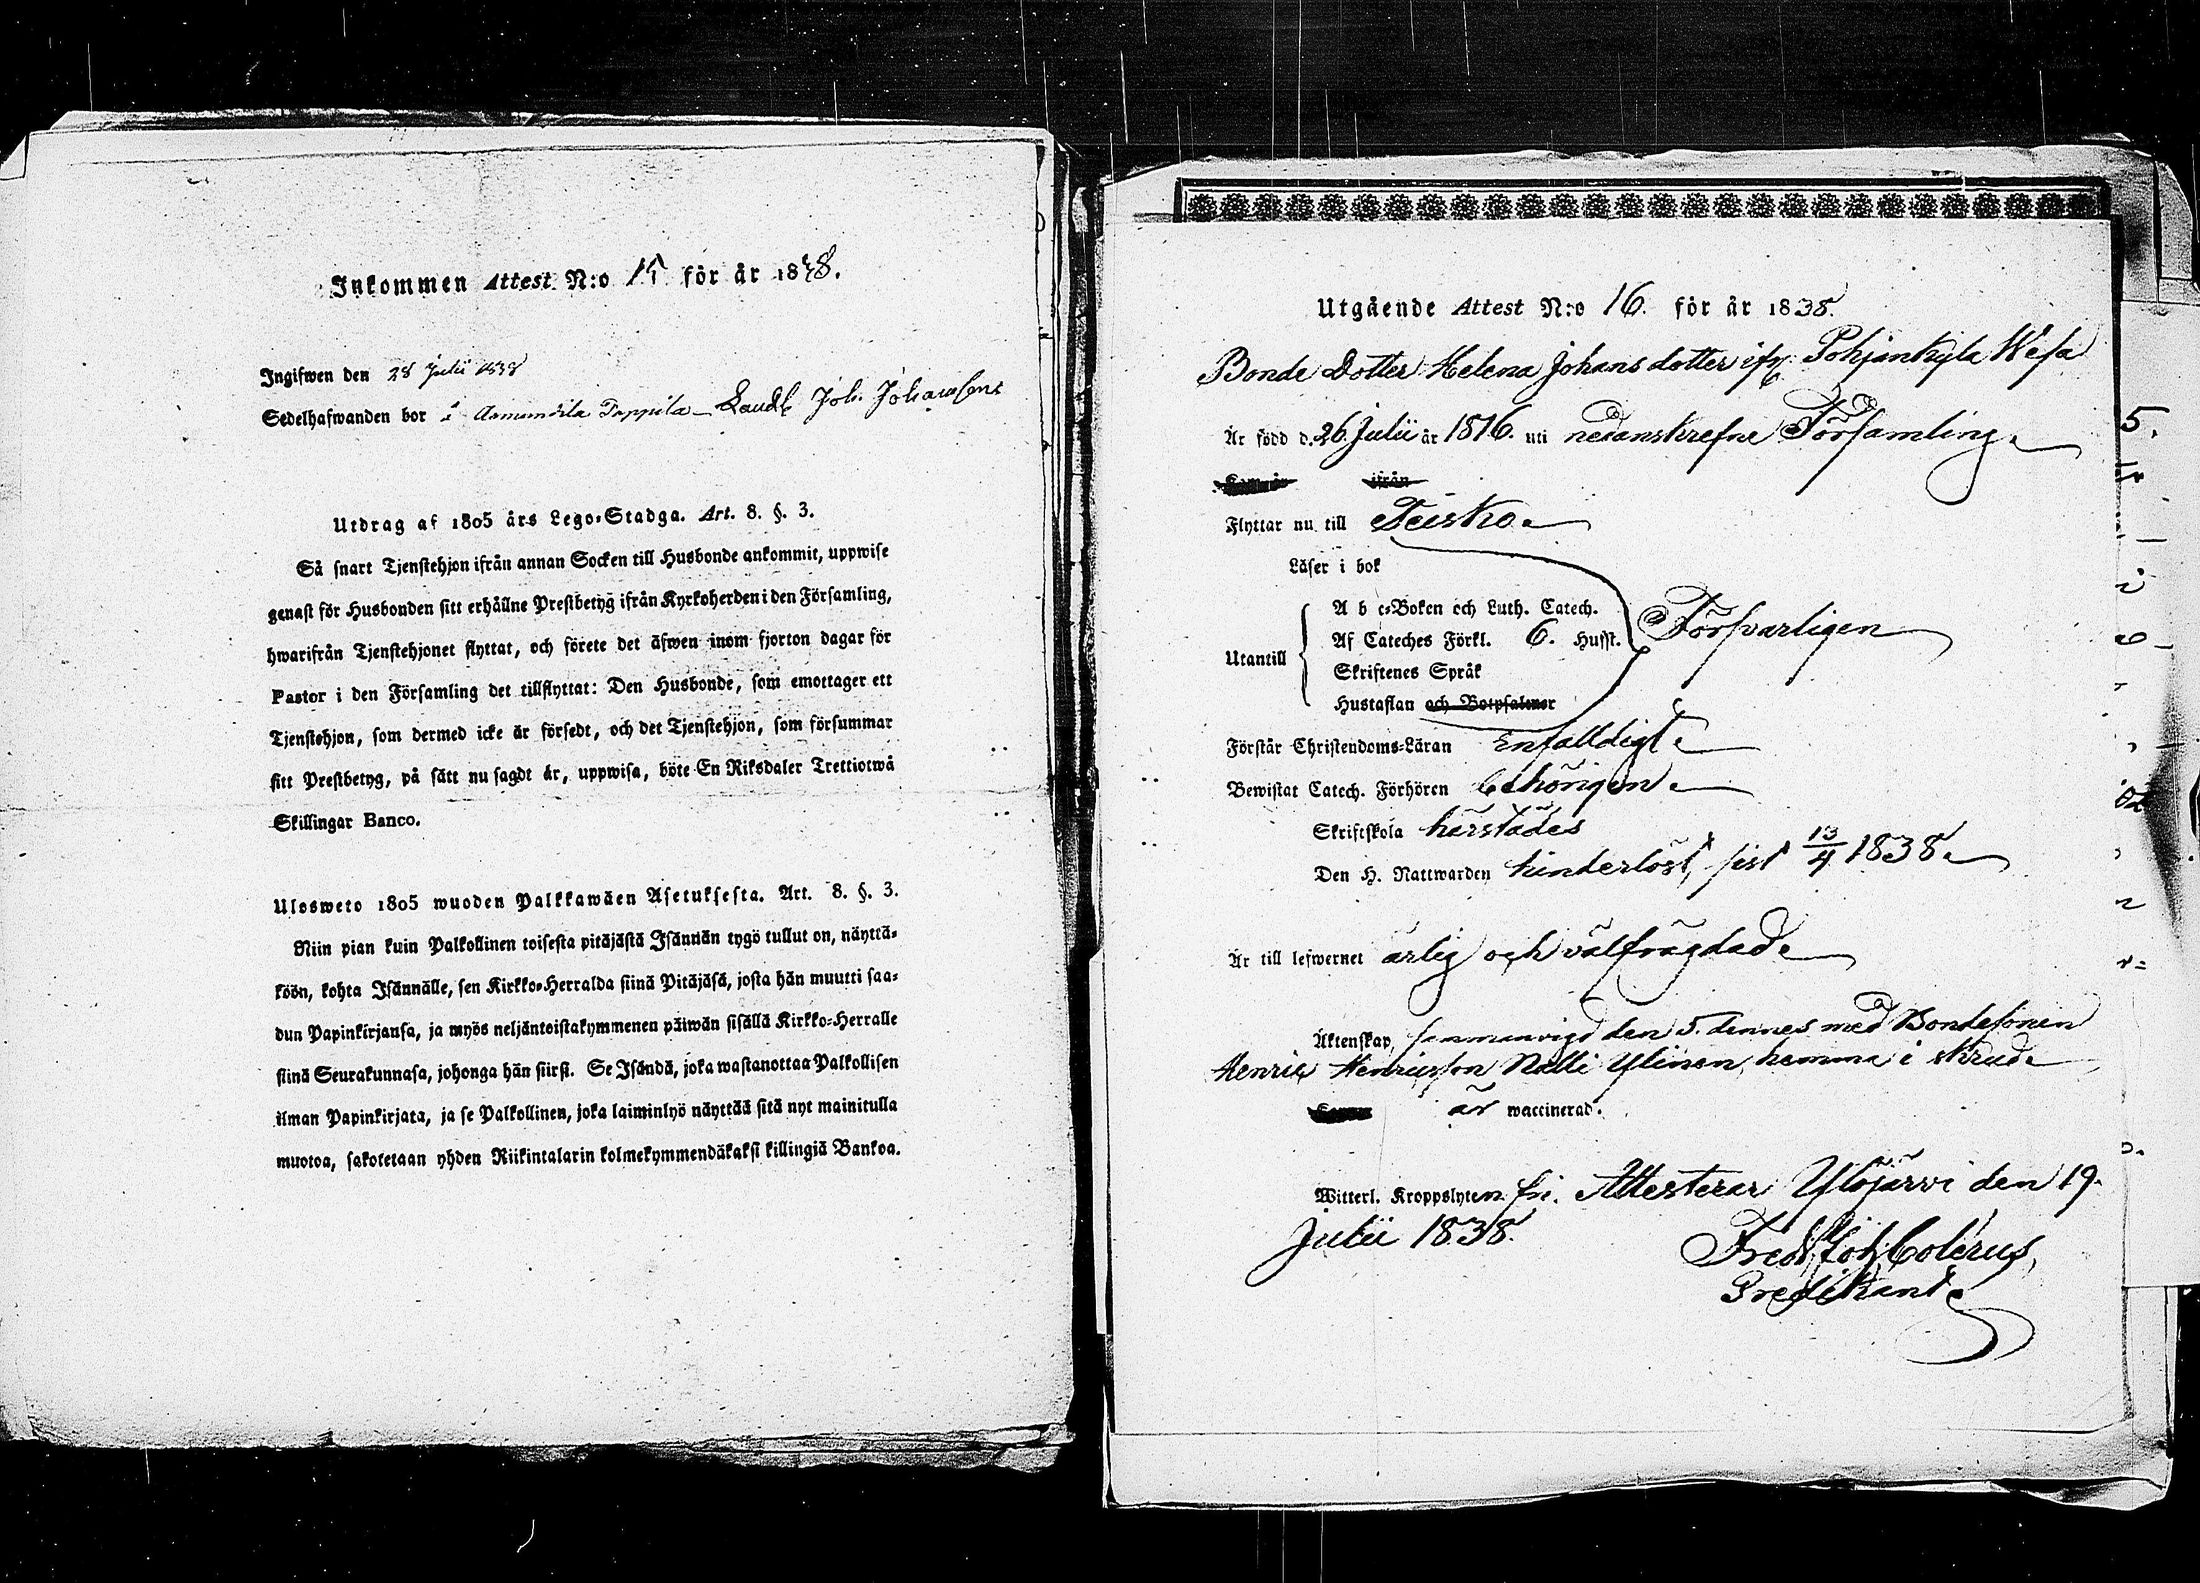 Inkommen Attest N:o 15 för år 1838.
Ingifwen den 28 Julii 1838
Sedelhafwanden bor i Asmundila Pappila – Landb Joh. Johanssons
Utdrag af 1805 års Lego-Stadga. Art. 8. §. 3.
Så snart Tjenstehjon ifrån annan Socken till Husbonde ankommit, uppwise
genast för Husbonden sitt erhållne Prestbetyg ifrån Kyrkoherden i den Församling,
hwarifrån Tjenstehjonet flyttat, och förete det äfwen inom fjorton dagar för
Pastor i den Församling det tillflyttat: Den Husbonde, som emottager ett
Tjenstehjon, som dermed icke är försedt, och det Tjenstehjon, som försummar
sitt Prestbetyg, på sätt nu sagdt är, uppwisa, böte En Riksdaler Trettiotwå
Skillingar Banco.
Ulosweto 1805 wuoden Palkkawäen Asetuksesta. Art. 8. §. 3.
Niin pian kuin Palkollinen toisesta pitäjästä Isännän tygö tullut on, näyttä-
köön, kohta Isännälle, sen Kirkko-Herralda siinä Pitäjäsä, josta hän muutti saa-
dun Papinkirjansa, ja myös neljäntoistakymmenen päiwän sisällä Kirkko-Herralle
siinä Seurakunnasa, johonga hän siirsi. Se Isändä, joka wastanottaa Palkollisen
ilman Papinkirjata, ja se Palkollinen, joka laiminlyö näyttää sitä nyt mainitulla
muotoa, sakotetaan yhden Riikintalarin kolmekymmendäkaksi killingiä Bankoa.
Utgående Attest N:o 16. för år 1838.
Bonde Dotter Helena Johansdotter ifr. Pohjankyla Wesa
Är född d. 26 Julii år 1816. uti nedanskrefne Församling.
ifrån
Flyttar nu till Teisko.
Läser i bok
A b c-Boken och Luth. Catech.
Af Cateches Förkl. 6. Husst. Försvarligen
Utantill
Skriftenes Språk
Hustaflan och Botpsalmer
Förstår Christendoms-Läran Enfalldigt.
Bewistat Catech. Förhören behörigen.
Skriftskola härstädes
Den H. Nattwarden hinderlöst, sist 13/4 1838.
Är till lefwernet ärlig och välfrägdad.
Äktenskap, sammanvigd den 5. dennes med Bondesonen
Henric Henricsson Nalli Ylinen hemma i
är waccinerad.
Witterl. Kroppslyten fri. Attesterar Ylöjärvi den 19.
Julii 1838.
Fred. Joh. Colérus,
Predikant.